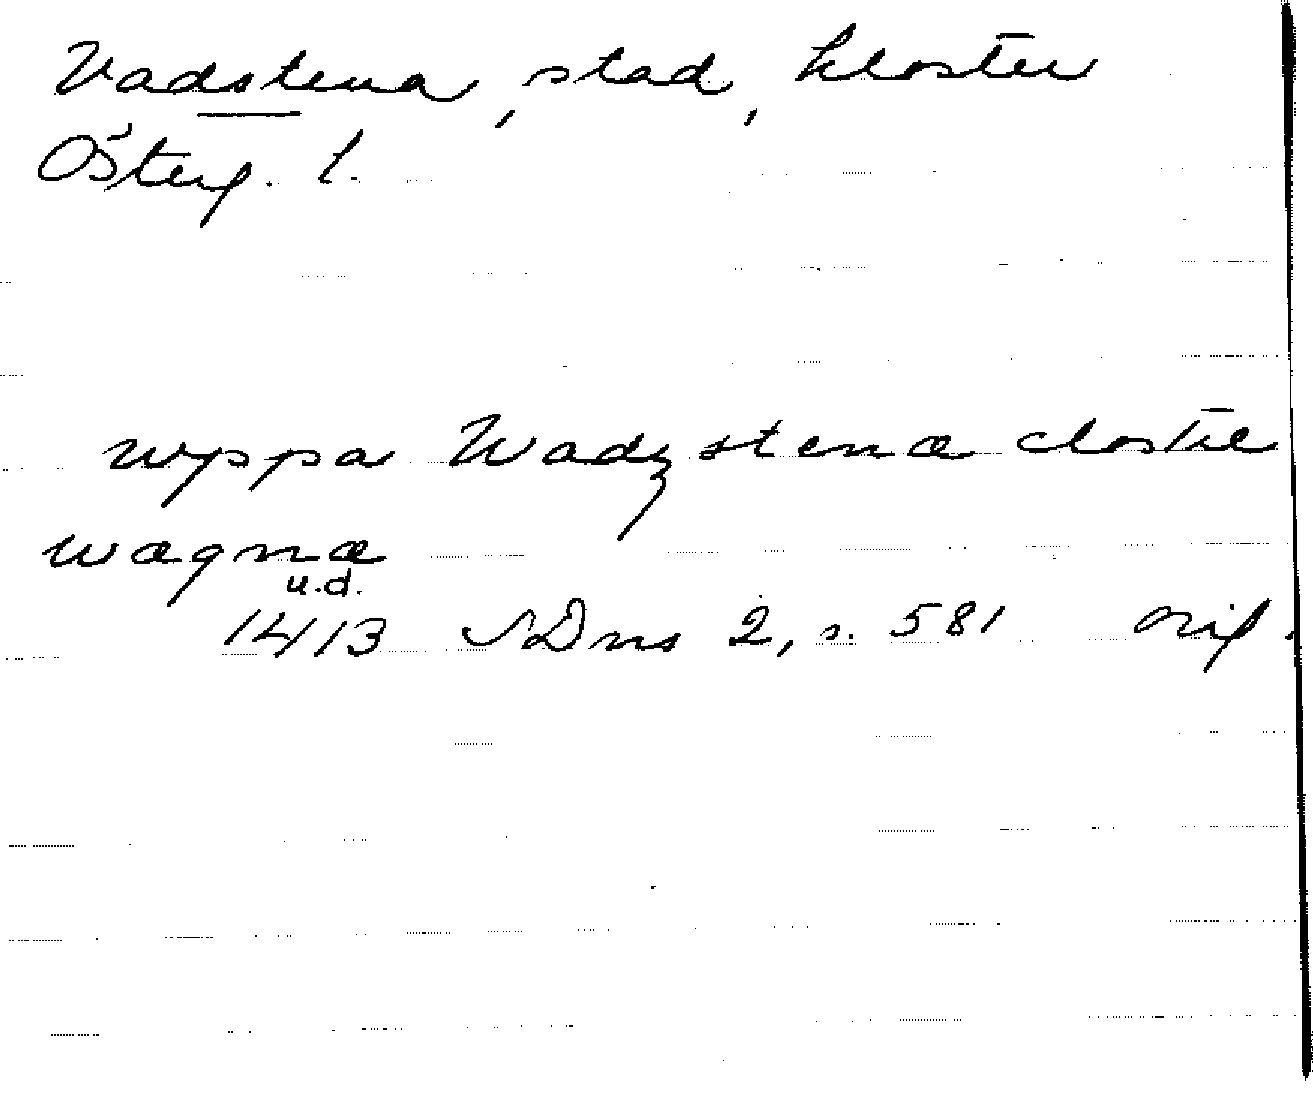 Vadstena, stad, kloster
Österg. l.
wppa Wadzstenæ closter
wægnæ
u.d.
1413 SDns 2, s. 581 orig.